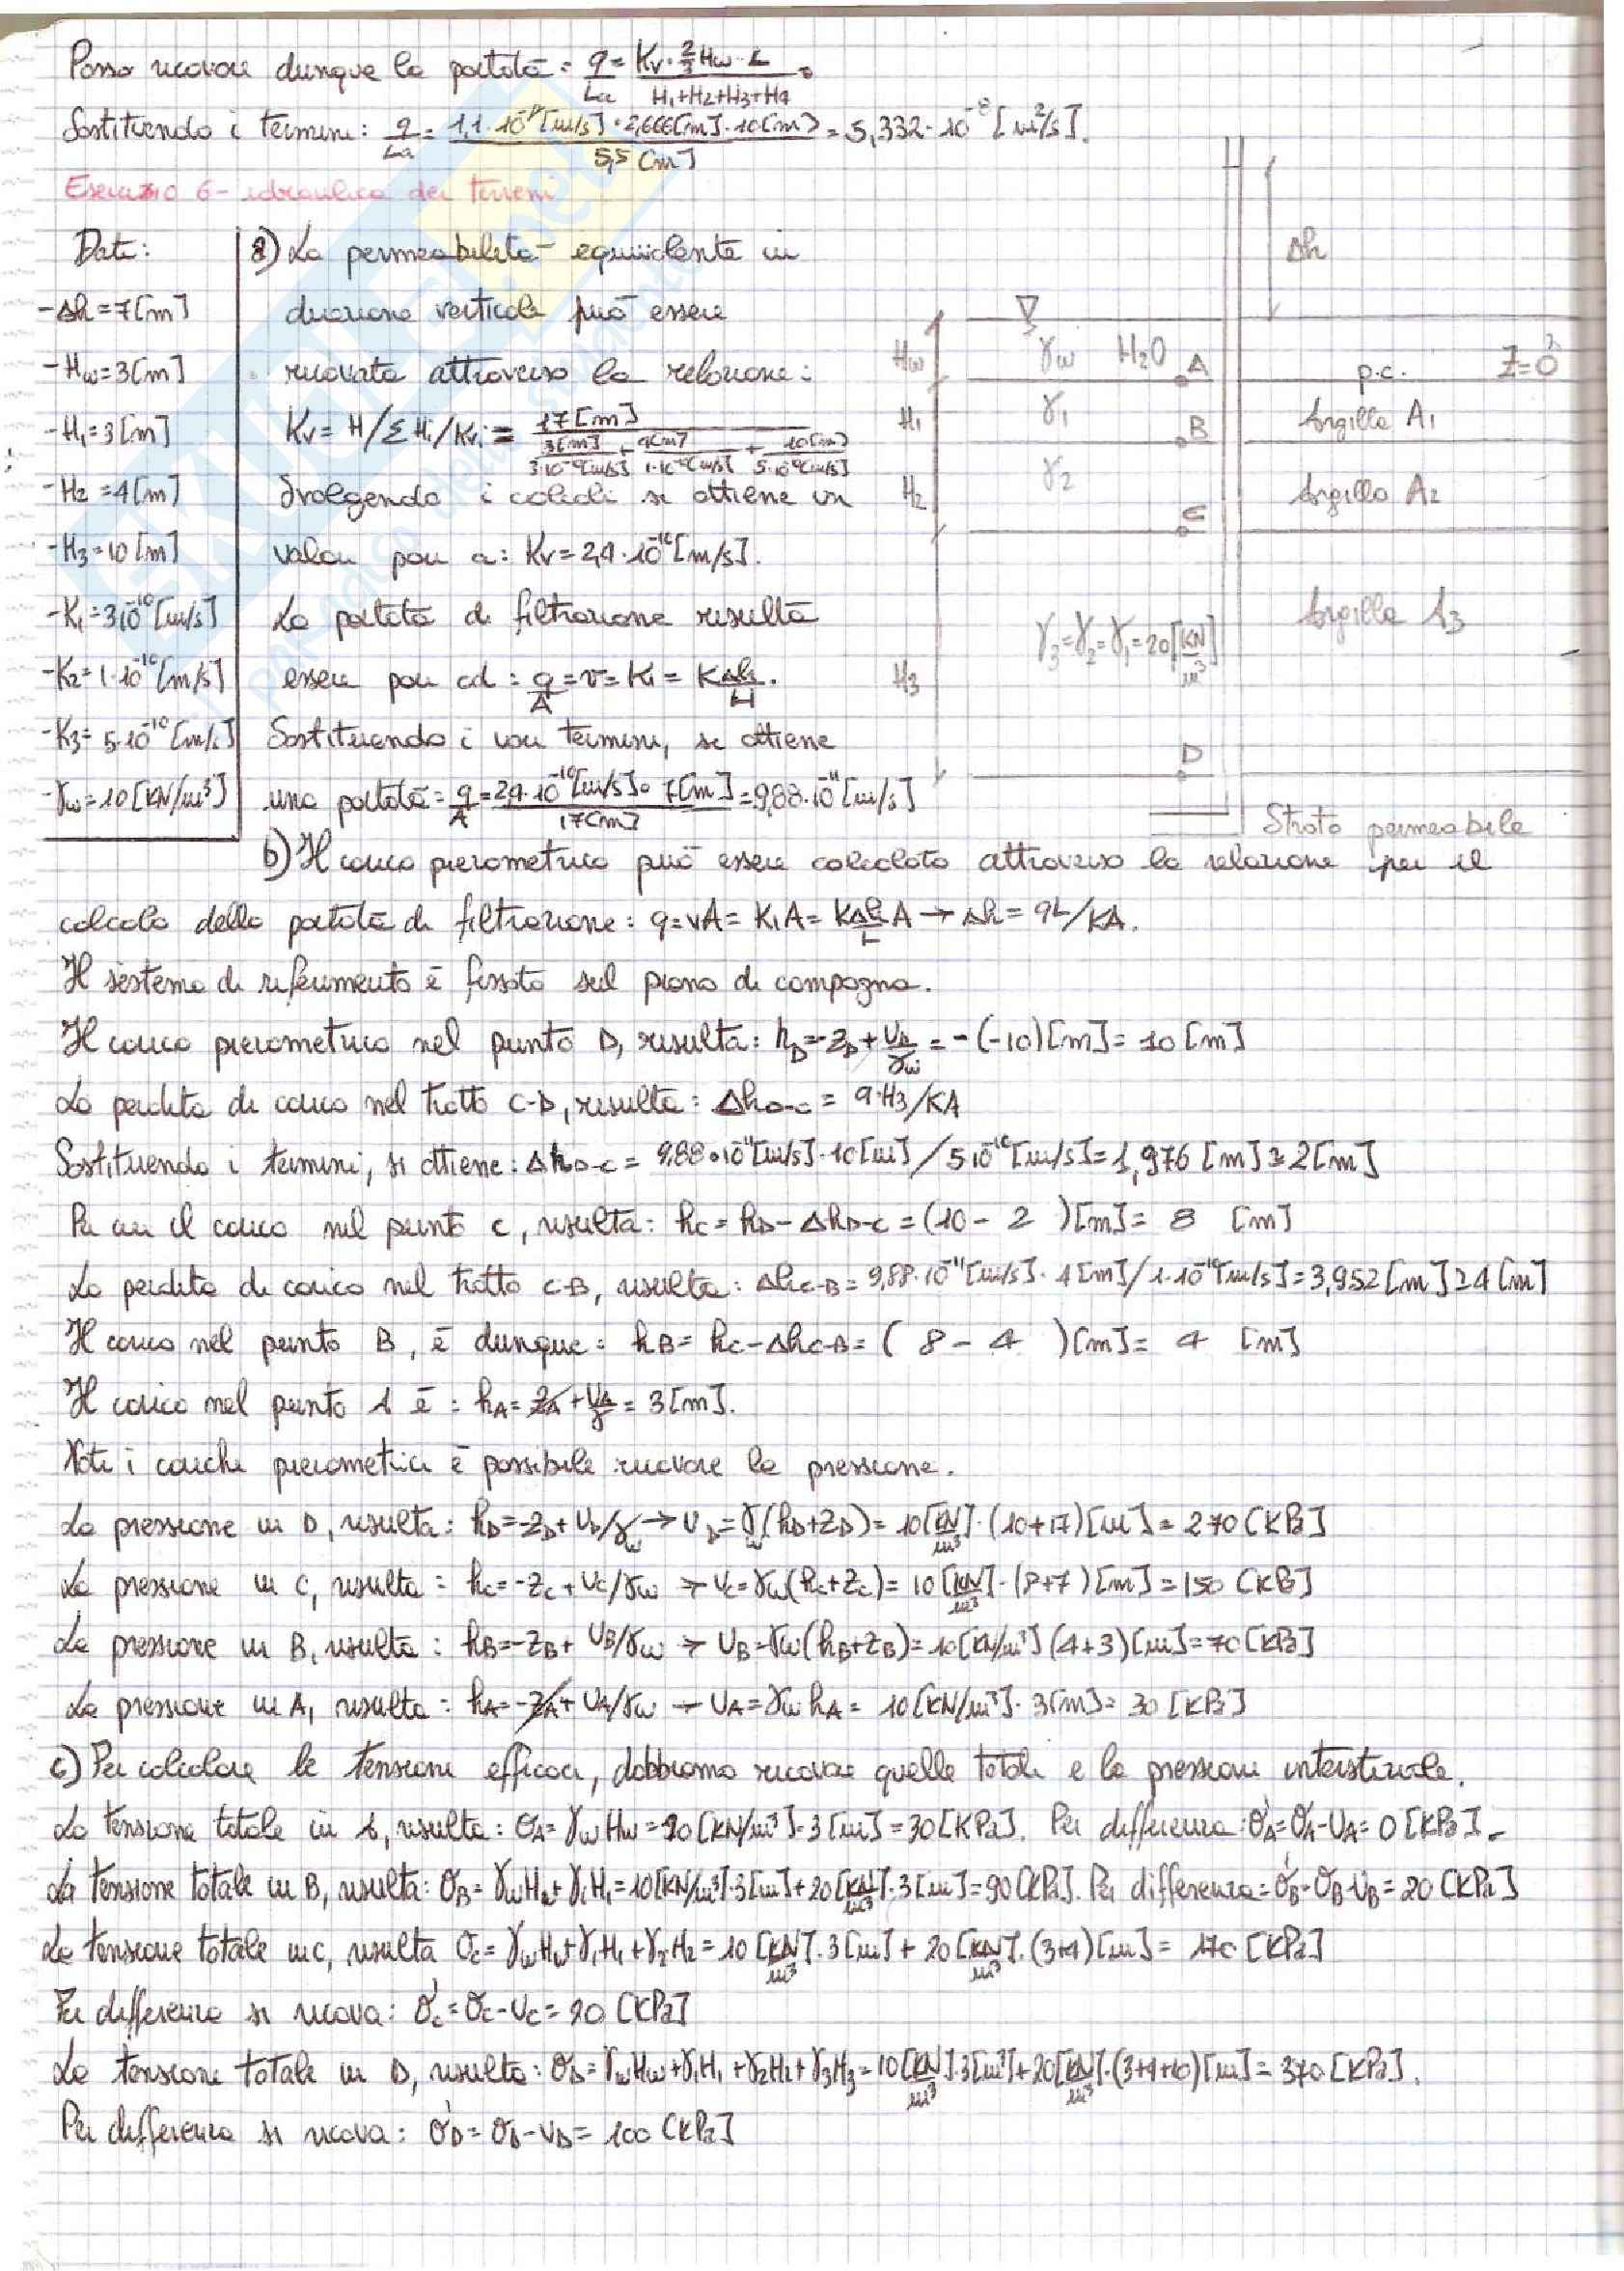 Posso ricavare dunque la portata: q/La = Kv · 2/3 Hw · L / H1+H2+H3+H4
Sostituendo i termini: q/La = 1,1 · 10 [m/s] · 2,666[m] · 10[m] / 5,5 [m] = 5,332 · 10⁻⁸ [m²/s].
Esercizio 6 - idraulica dei terreni
Dati:
- Δh = 7 [m]
- Hw = 3 [m]
- H1 = 3 [m]
- H2 = 4 [m]
- H3 = 10 [m]
- K1 = 3·10⁻¹⁰ [m/s]
- K2 = 1·10⁻¹⁰ [m/s]
- K3 = 5·10⁻¹⁰ [m/s]
- γw = 10 [KN/m³]
a) La permeabilità equivalente in
direzione verticale può essere
ricavata attraverso la relazione:
Kv = H/Σ Hi/Kvi = 17 [m] / 3[m]/3·10⁻¹⁰[m/s] + 4[m]/1·10⁻¹⁰[m/s] + 10[m]/5·10⁻¹⁰[m/s]
Svolgendo i calcoli si ottiene un
valore pari a: Kv = 2,4 · 10⁻¹⁰ [m/s].
La portata di filtrazione risulta
essere pari ad: q/A = v = Ki = K Δh/H.
Sostituendo i vari termini, si ottiene
una portata: q/A = 2,4 · 10⁻¹⁰ [m/s] · 7[m] / 17[m] = 9,88 · 10⁻¹¹ [m/s]
Δh
Hw γw H2O A p.c. Z=0
H1 γ1 B Argilla A1
H2 γ2 C Argilla A2
Argilla A3
H3 γ3=γ2=γ1=20[KN/m³]
D
Strato permeabile
b) Il carico piezometrico può essere calcolato attraverso la relazione per il
calcolo della portata di filtrazione: q = vA = KiA = K Δh/L A → Δh = qL/KA.
Il sistema di riferimento è fissato sul piano di campagna.
Il carico piezometrico nel punto D, risulta: hD = -zD + UD/γw = -(-10) [m] = 10 [m]
La perdita di carico nel tratto C-D, risulta: ΔhD-C = q·H3/KA
Sostituendo i termini, si ottiene: ΔhD-C = 9,88·10⁻¹¹[m/s]·10[m] / 5·10⁻¹⁰[m/s] = 1,976 [m] ≅ 2[m]
Per cui il carico nel punto C, risulta: hC = hD - ΔhD-C = (10 - 2 )[m] = 8 [m]
La perdita di carico nel tratto C-B, risulta: ΔhC-B = 9,88·10⁻¹¹[m/s] · 4[m] / 1·10⁻¹⁰[m/s] = 3,952[m] ≅ 4[m]
Il carico nel punto B, è dunque: hB = hC - ΔhC-B = ( 8 - 4 )[m] = 4 [m]
Il carico nel punto A è: hA = zA + UA/γ = 3 [m].
Noti i carichi piezometrici è possibile ricavare la pressione.
La pressione in D, risulta: hD = -zD + UD/γw → UD = γw(hD+zD) = 10[KN/m³] · (10+17) [m] = 270 [KPa]
La pressione in C, risulta: hC = -zC + UC/γw → UC = γw(hC+zC) = 10 [KN/m³] · (8+7) [m] = 150 [KPa]
La pressione in B, risulta: hB = -zB + UB/γw → UB = γw(hB+zB) = 10 [KN/m³] (4+3) [m] = 70 [KPa]
La pressione in A, risulta: hA = -zA + UA/γw → UA = γw hA = 10[KN/m³] · 3[m] = 30 [KPa]
c) Per calcolare le tensioni efficaci, dobbiamo ricavare quelle totali e le pressioni interstiziale.
La tensione totale in A, risulta: σA = γw Hw = 10 [KN/m³]·3 [m] = 30 [KPa]. Per differenza: σ'A = σA - UA = 0 [KPa].
La tensione totale in B, risulta: σB = γwHw + γ1H1 = 10[KN/m³]·3[m] + 20[KN/m³]·3[m] = 90 [KPa]. Per differenza: σ'B = σB - UB = 20 [KPa]
La tensione totale in C, risulta σC = γwHw + γ1H1 + γ2H2 = 10 [KN/m³] · 3[m] + 20 [KN/m³] · (3+4) [m] = 170 [KPa]
Per differenza si ricava: σ'C = σC - UC = 20 [KPa]
La tensione totale in D, risulta: σD = γwHw + γ1H1 + γ2H2 + γ3H3 = 10[KN/m³]·3[m] + 20[KN/m³]·(3+4+10) [m] = 370 [KPa].
Per differenza si ricava: σ'D = σD - UD = 100 [KPa]